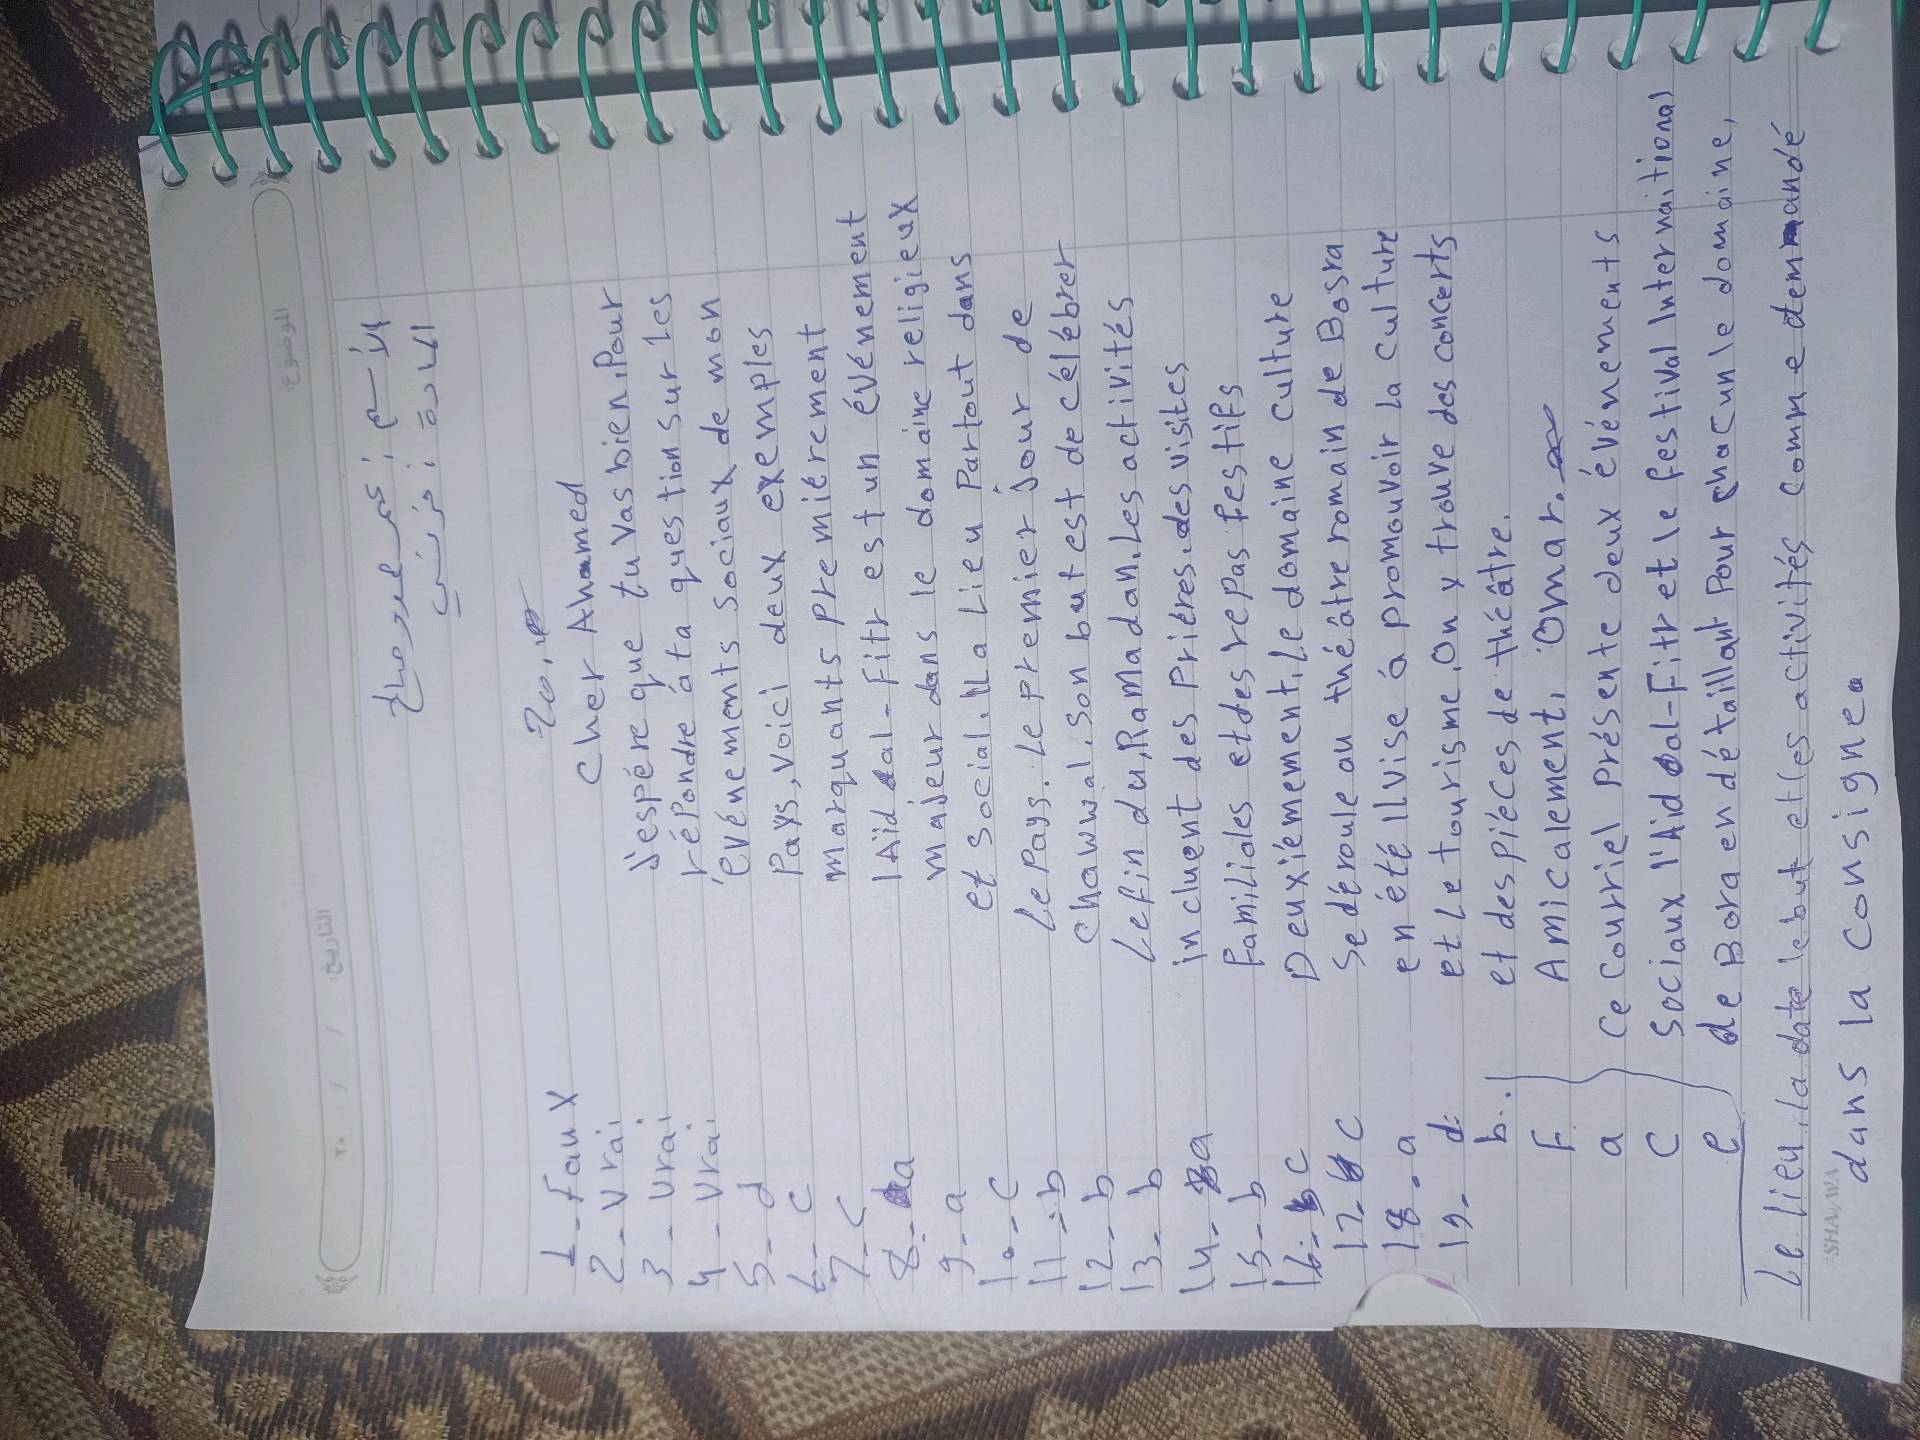 الموضوع:
التاريخ: / / ٢٠
الأسم : عمر عبدو صباغ
المادة : فرنسي
20.
1 - Faux
2 - Vrai
3 - Vrai
4 - Vrai
5 - d
6 - c
7 - c
8 - a
9 - a
10 - c
11 - b
12 - b
13 - b
14 - a
15 - b
16 - c
17 - c
18 - a
19 - d
b
F
a
c
e
Cher Ahamed
J'espére que tu vas bien. Pour
répondre á ta question sur les
événements sociaux de mon
Pays, voici deux exemples
marquants premiérement
l'Aïd al-Fitr est un événement
majeur dans le domaine religieux
et social. Il a Lieu Partout dans
Le Pays. Le premier Jour de
Chawwal. Son but est de célébrer
La fin du, Ramadan. Les activités
incluent des Priéres. des visites
familiales et des repas festifs
Deuxiémement, Le domaine culture
Se déroule au théâtre romain de Bosra
en été Il vise á promouvoir la culture
et Le tourisme. On y trouve des concerts
et des piéces de théâtre.
Amicalement, Omar.
Ce Courriel Présente deux événements
Sociaux l'Aid al-Fitr et le festival Internaitional
de Bora en détaillant Pour chacun le domaine,
Le lieu, la date le but et les activités comme demandé
dans la consigne
SHAWA